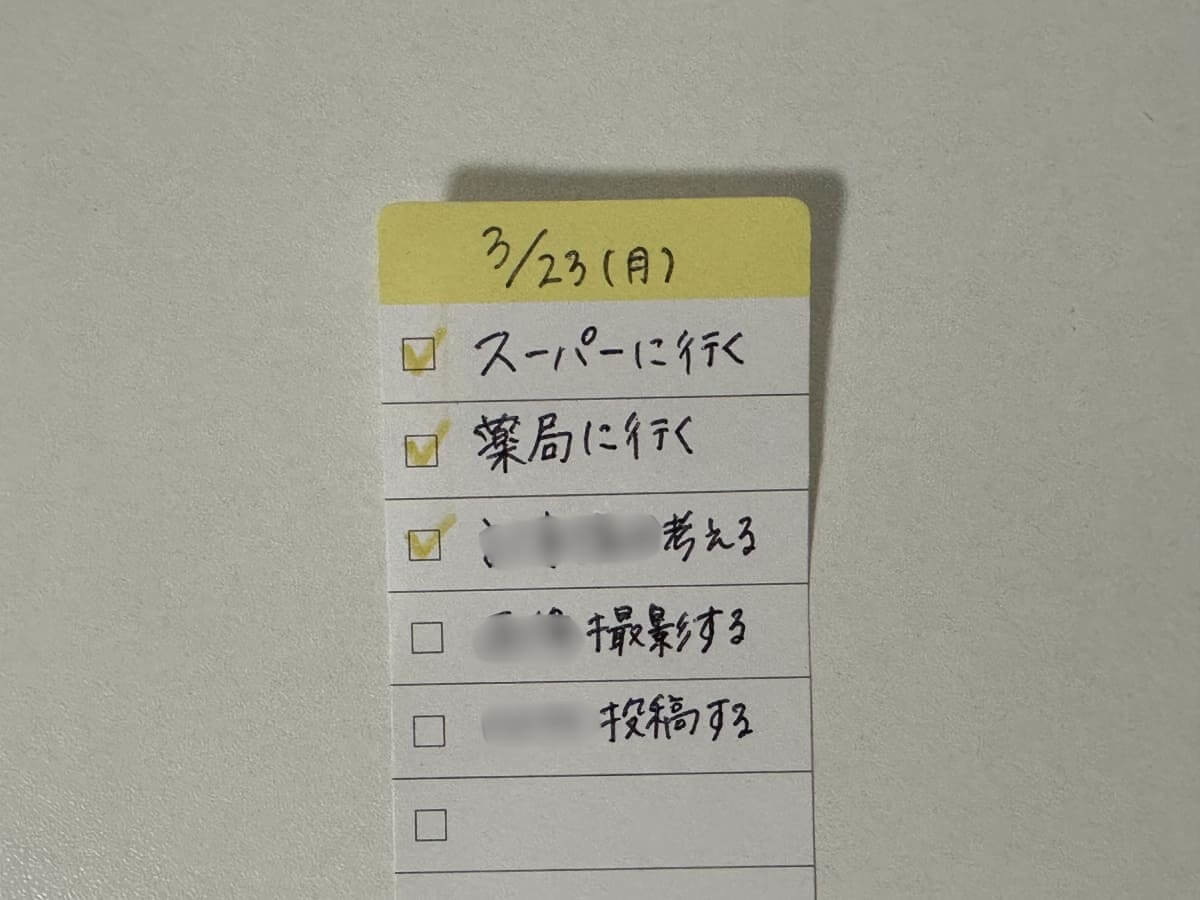 3/23(月)
スーパーに行く
薬局に行く
考える
撮影する
投稿する